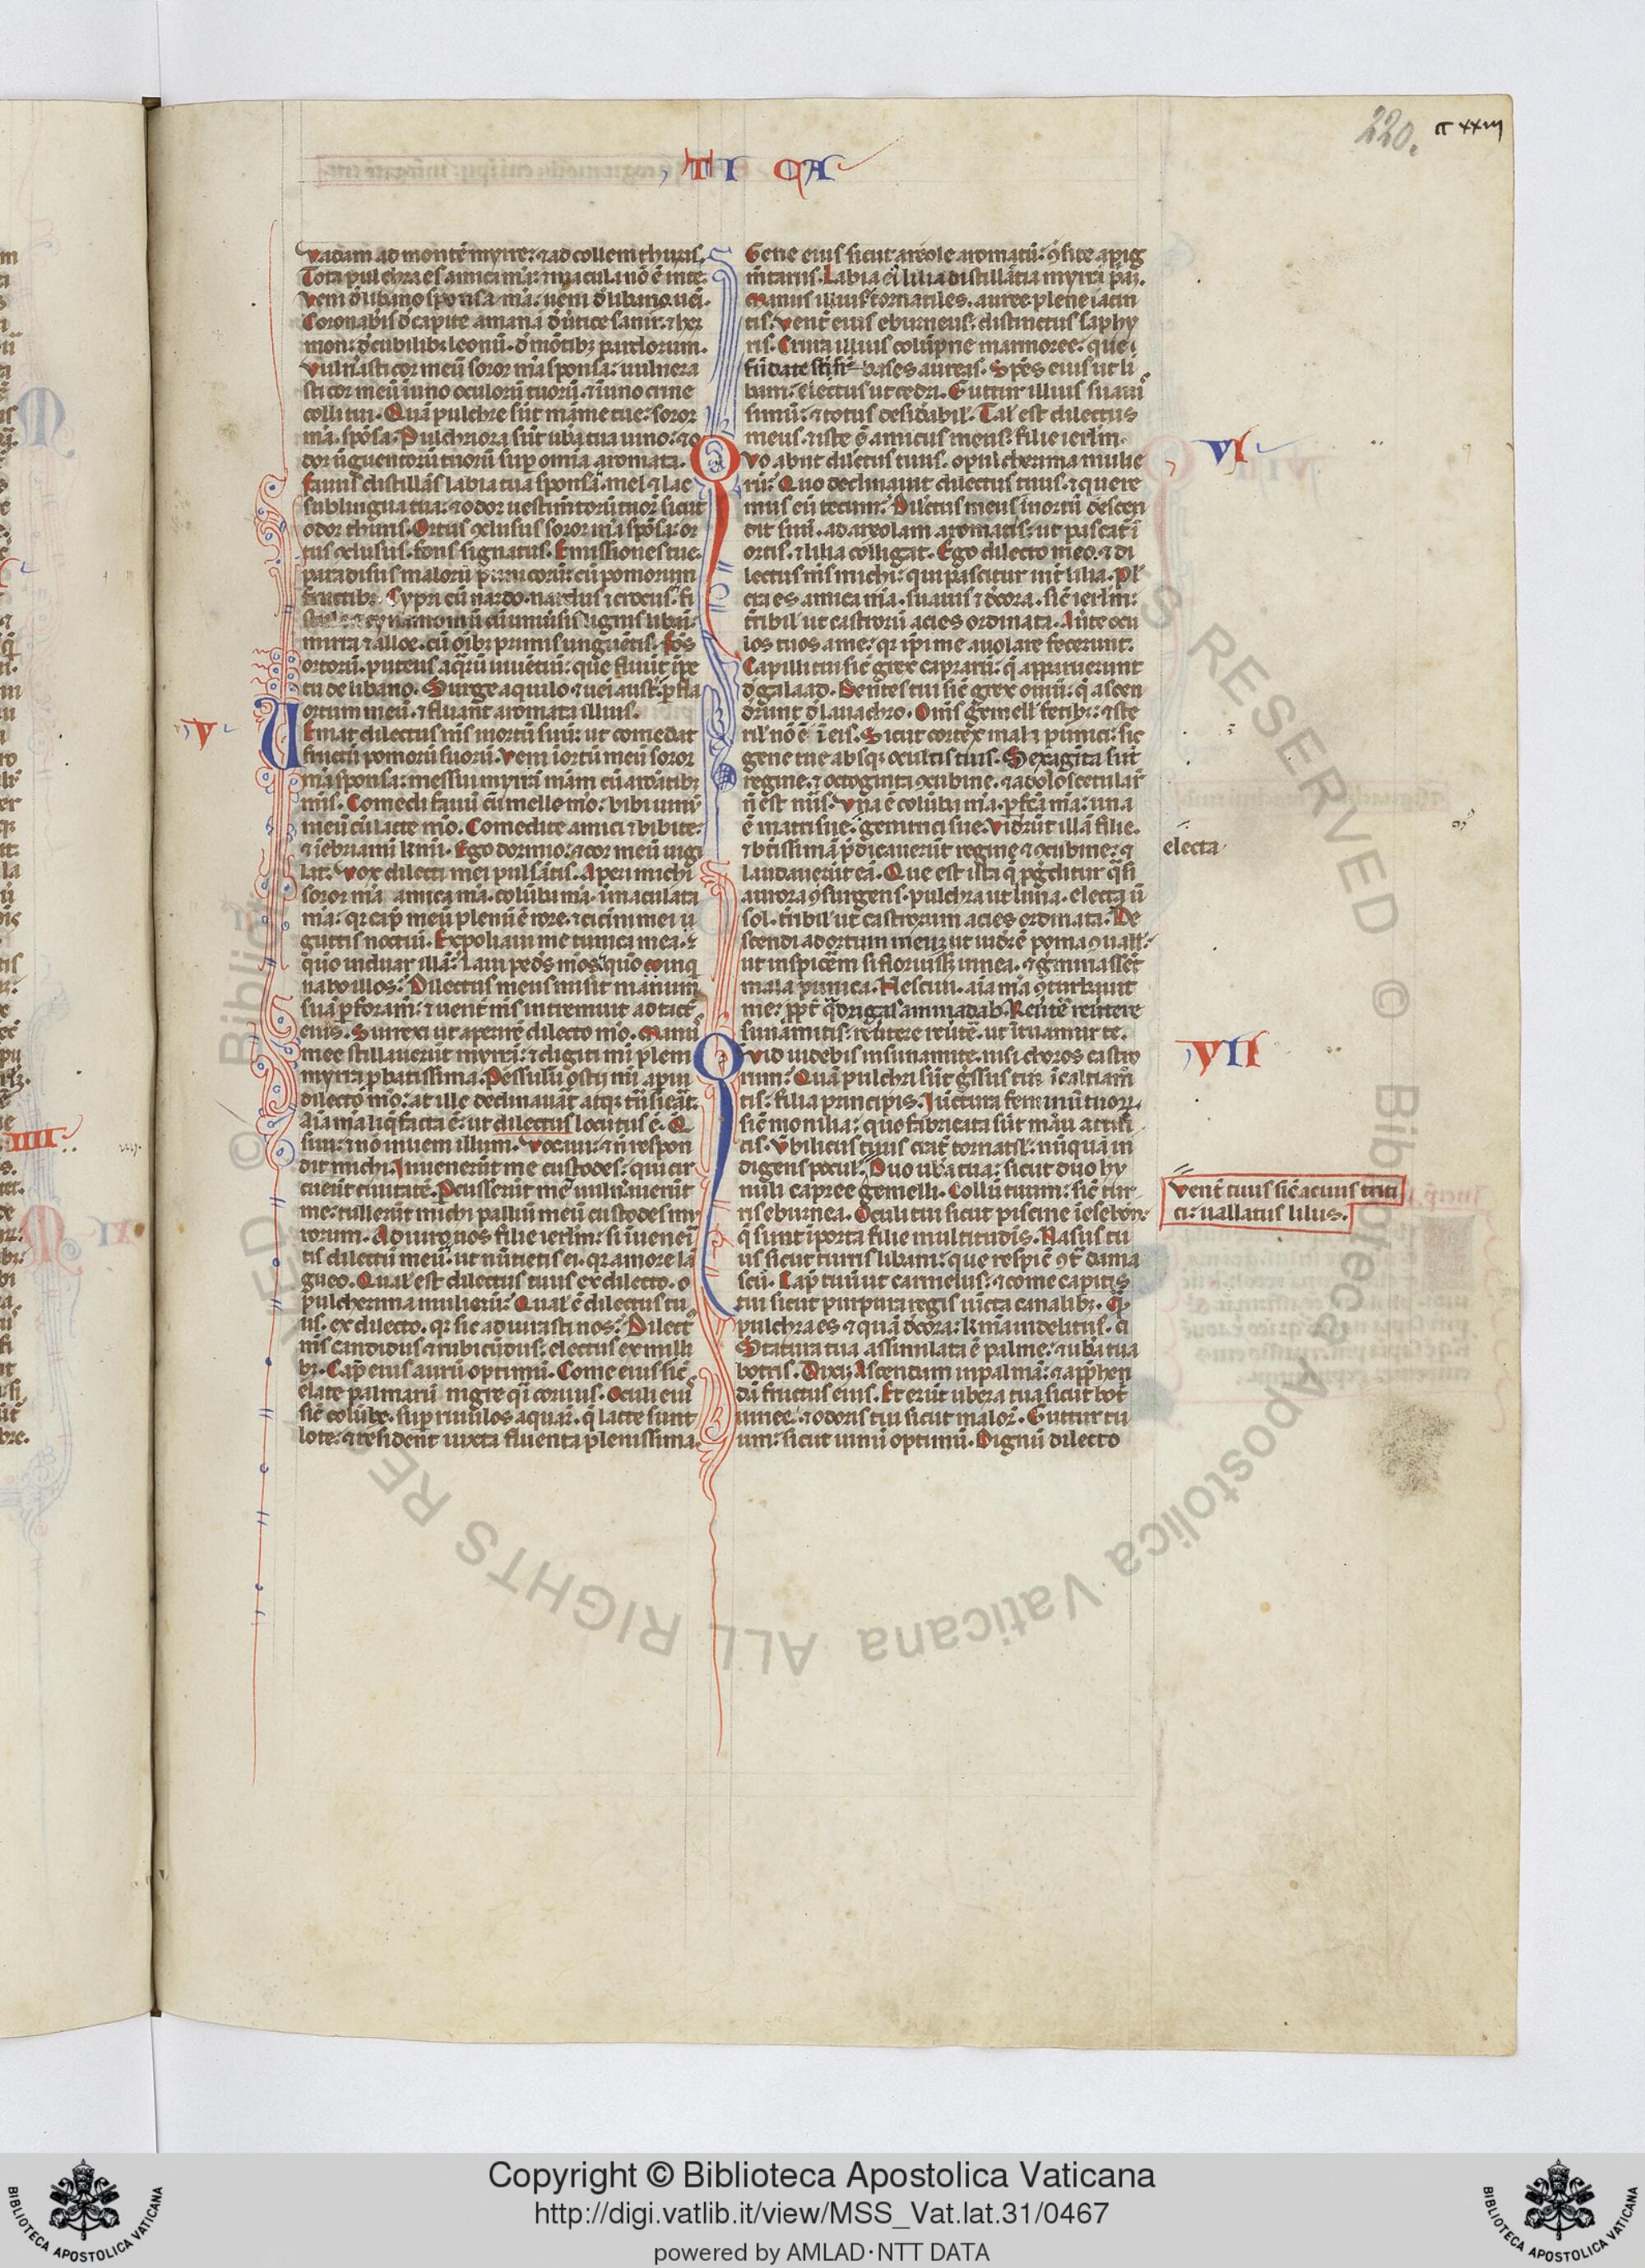 220.
TI CA
vadam ad montē myrre: ⁊ ad collem thuris.
Tota pulchra es amica mā: ⁊ macula nō ē inte.
Veni d̄ libano sponsa mā: ueni d̄ libano. ueī.
Coronabis d̄ capite amana d̄ ūtice sanir. ⁊ her
mon: d̄ cubilibꝫ leonū. d̄ mōtibꝫ pardorum.
Vulnasti cor meū soror mā sponsa: uulnera
sti cor meū ī uno oculorū tuorū. ⁊ ī uno crine
colli tui. Quā pulchre sūt māme tue: soror
mā. spōsa. Pulchriora sūt ubā tua uino: ⁊ o
dor ūguentorū tuorū sup̄ omīa aromata.
fauus distillās labia tua sponsa. mel ⁊ lac
sub lingua tua: ⁊ odor uestimtorū tuoꝝ sicut
odor thuris. Ortus ↄclusus soror mā spōsa: or
tus ↄclusus. fons signatus. Emissiones tue.
paradisus malorū punicorū: cū pomorum
fructibꝫ. Cypri cū nardo. nardus ⁊ crocus. fi
mirra ⁊ aloe. cū oībꝫ primis unguētis. fōs
ortorū. puteus aqrū uiuētiū: que fluūt īpe
tu de libano. Surge aquilo. ⁊ uei aust̄. p̄fla
ortum meū. ⁊ fluant aromata illius.
V
Eniat dilectus m̄s ī ortū suū: ut comedat
fructū pomorū suorū. Veni ī ortū meū soror
mā sponsa: messui myrrā mām cū aromatibꝫ
m̄is. Comedi fauū cū melle mō: bibi uinū
meū cū lacte mō. Comedite amici ⁊ bibite:
⁊ īebriamī kmī. Ego dormio: ⁊ cor meū uigi
lat. Vox dilecti mei pulsātis. Aperi michi
soror mā amica mā. colūba mā. īmaculata
mā: qꝛ cap̄ meū plenū ē rore. ⁊ cicīni mei ū
guttis noctiū. Expoliaui me tunica mea. ⁊
quō induar illā: Laui pedes m̄os. quō coinq
nabo illos: Dilectus meus misit manum
suā p̄ foram: ⁊ uent̄ m̄s intremuit ad tact̄
eius. Surrexi ut aperirē dilecto mō. Manū
mee stillauerūt myrrā: ⁊ digiti mī pleni
myrra ꝓbatissima. Pessulū ostij mī aperui
dilecto mō: at ille declinauāt atqꝫ tūsierat.
Aīa mā liqfacta ē: ut dilectus locutus ē. Q
siui: ⁊ nō inueni illum. Vocaui: ⁊ n̄ respon
dit michi. Inuenerūt me custodes: qui cir
cueūt ciuitatē. Pcusserūt me ⁊ uulnauerūt
me: tullerūt michi palliū meū custodes mu
rorum. Adiuro uos filie ierlm̄: si īueneri
tis dilectū meū. ut nūtietis ei. qꝛ amore lā
gueo. Qual̄ est dilectus tuus ex dilecto. o
pulcherrima mulierū: Qual̄ ē dilectus tu
us. ex dilecto. qꝛ sic adiurasti nos: Dilect̄
m̄s candidus ⁊ rubicūdus: electus ex milli
bꝫ. Cap̄ eius aurū optimū. Come eius sic̄
elate palmarū nigre q̄i coruus. Oculi eiū
sic̄ colūbe. sup̄ riuulos aquaꝝ. q̄ lacte sunt
lote: ⁊ resident iuxta fluenta plenissima.
Gene eius sicut areole aromatū: ↄsite a pig
m̄tarijs. Labia ei lilia distillātia myrrā p̄aj.
Manus illius tornatiles. auree plene iacin
tis. Vent̄ eius eburneus: distinctus saphy
ris. Crura illius colūpne marmoree: que
fūdate sūt sr̄ bases aureas. Spēs eius ut li
bani: electus ut cedri. Guttur illius suaui
simū: ⁊ totus desid̄abil̄. Tal̄ est dilectus
meus. ⁊ iste ē amicus meus: filie ierlm̄.
VI
Quo abiit dilectus tuus. o pulcherrima mulie
rū: Quo declinauit dilectus tuus. ⁊ quere
mus eū tecum: Dilectus meus ī ortū descen
dit suū. ad areolam aromatis: ut pascat̄ ī
ortis. ⁊ lilia colligat. Ego dilecto meo. ⁊ di
lectus m̄s michi: qui pascitur int̄ lilia. Pl̄
cra es amica mā. suauis ⁊ d̄cora. sic̄ ierlm̄:
t̄ribil̄ ut castrorū acies ordinata. Aūte ocu
los tuos a me: qꝛ ip̄i me auolare fecerunt.
Capilli tui sic̄ grex caprarū: q̄ apparuerunt
d̄ galaad. Dentes tui sic̄ grex ouiū: q̄ ascen
derunt d̄ lauachro. Om̄s gemell̄ fetibꝫ: ⁊ ste
ril̄ nō ē ī eis. Sicut cortex mali punici: sic
gene tue absqꝫ ocultis tuis. Sexagīta sūt
regine. ⁊ octoginta ↄcubine. ⁊ adoloscētulaꝝ
n̄ est nūs. Vna ē colūba mā. ꝑfc̄a mā: una
ē matri sue. genitrici sue. Viderūt illā filie.
⁊ btīssimā p̄dicauerūt regine ⁊ ↄcubine: ⁊
electa
laudauerūt eā. Que est ista q̄ ꝓgditur q̄si
aurora ↄsurgens. pulchra ut luna. electa ū
sol. t̄ribil̄ ut castrorum acies ordinata. De
scendi ad ortum meuꝫ ut uidērē poma ↄuall̄.
ut inspicerēm si floruissꝫ uinea. ⁊ ḡminassēt
mala punica. Nesciui. aīa mā ↄturbauit
me: ꝓpt̄ q̄drigas aminadab. Reūtē reūtere
sunamitis: reūtere reūtē. ut ītuamur te.
VII
Quid uidebis in sunamite. nisi choros castro
rum: Quā pulchri sūt ḡssus tui ī calciam̄
tis: filia principis. Iūctura feminū tuoꝝ.
sic̄ monilia: que fabricata sūt manu artifi
cis. Vbilicus tuus crat̄ tornatil̄: nūquā in
digens pocul̄. Duo ubā tua: sicut duo hy
nuli capree gemelli. Collū tuum: sic̄ tur
ris eburnea. Oculi tui sicut piscine ī esebon:
Vent̄ tuus sic̄ aceruus triti
ci: uallatus liliis.
q̄ sunt ī porta filie multitudīs. Nasus tu
us sicut turris libani: que respic̄ ↄt̄ dama
scū. Cap̄ tuū ut carmelus: ⁊ come capitis
tui sicut purpura regis uīcta canalibꝫ. Q̄
pulchra es ⁊ quā d̄cora: kma in delitijs.
Statura tua assimilata ē palme: ⁊ ubā tua
botris. Dixi: Ascendam in palmā: ⁊ apph̄en
dā fructus eius. Et erūt ubera tua sicut bot̄
uinee: ⁊ odoris tui sicut maloꝝ. Guttur tu
um: sicut uinū optimū. Dignū dilecto
Copyright © Biblioteca Apostolica Vaticana
http://digi.vatlib.it/view/MSS_Vat.lat.31/0467
powered by AMLAD·NTT DATA
BIBLIOTECA APOSTOLICA VATICANA
BIBLIOTECA APOSTOLICA VATICANA
© Biblioteca Apostolica Vaticana ALL RIGHTS RESERVED